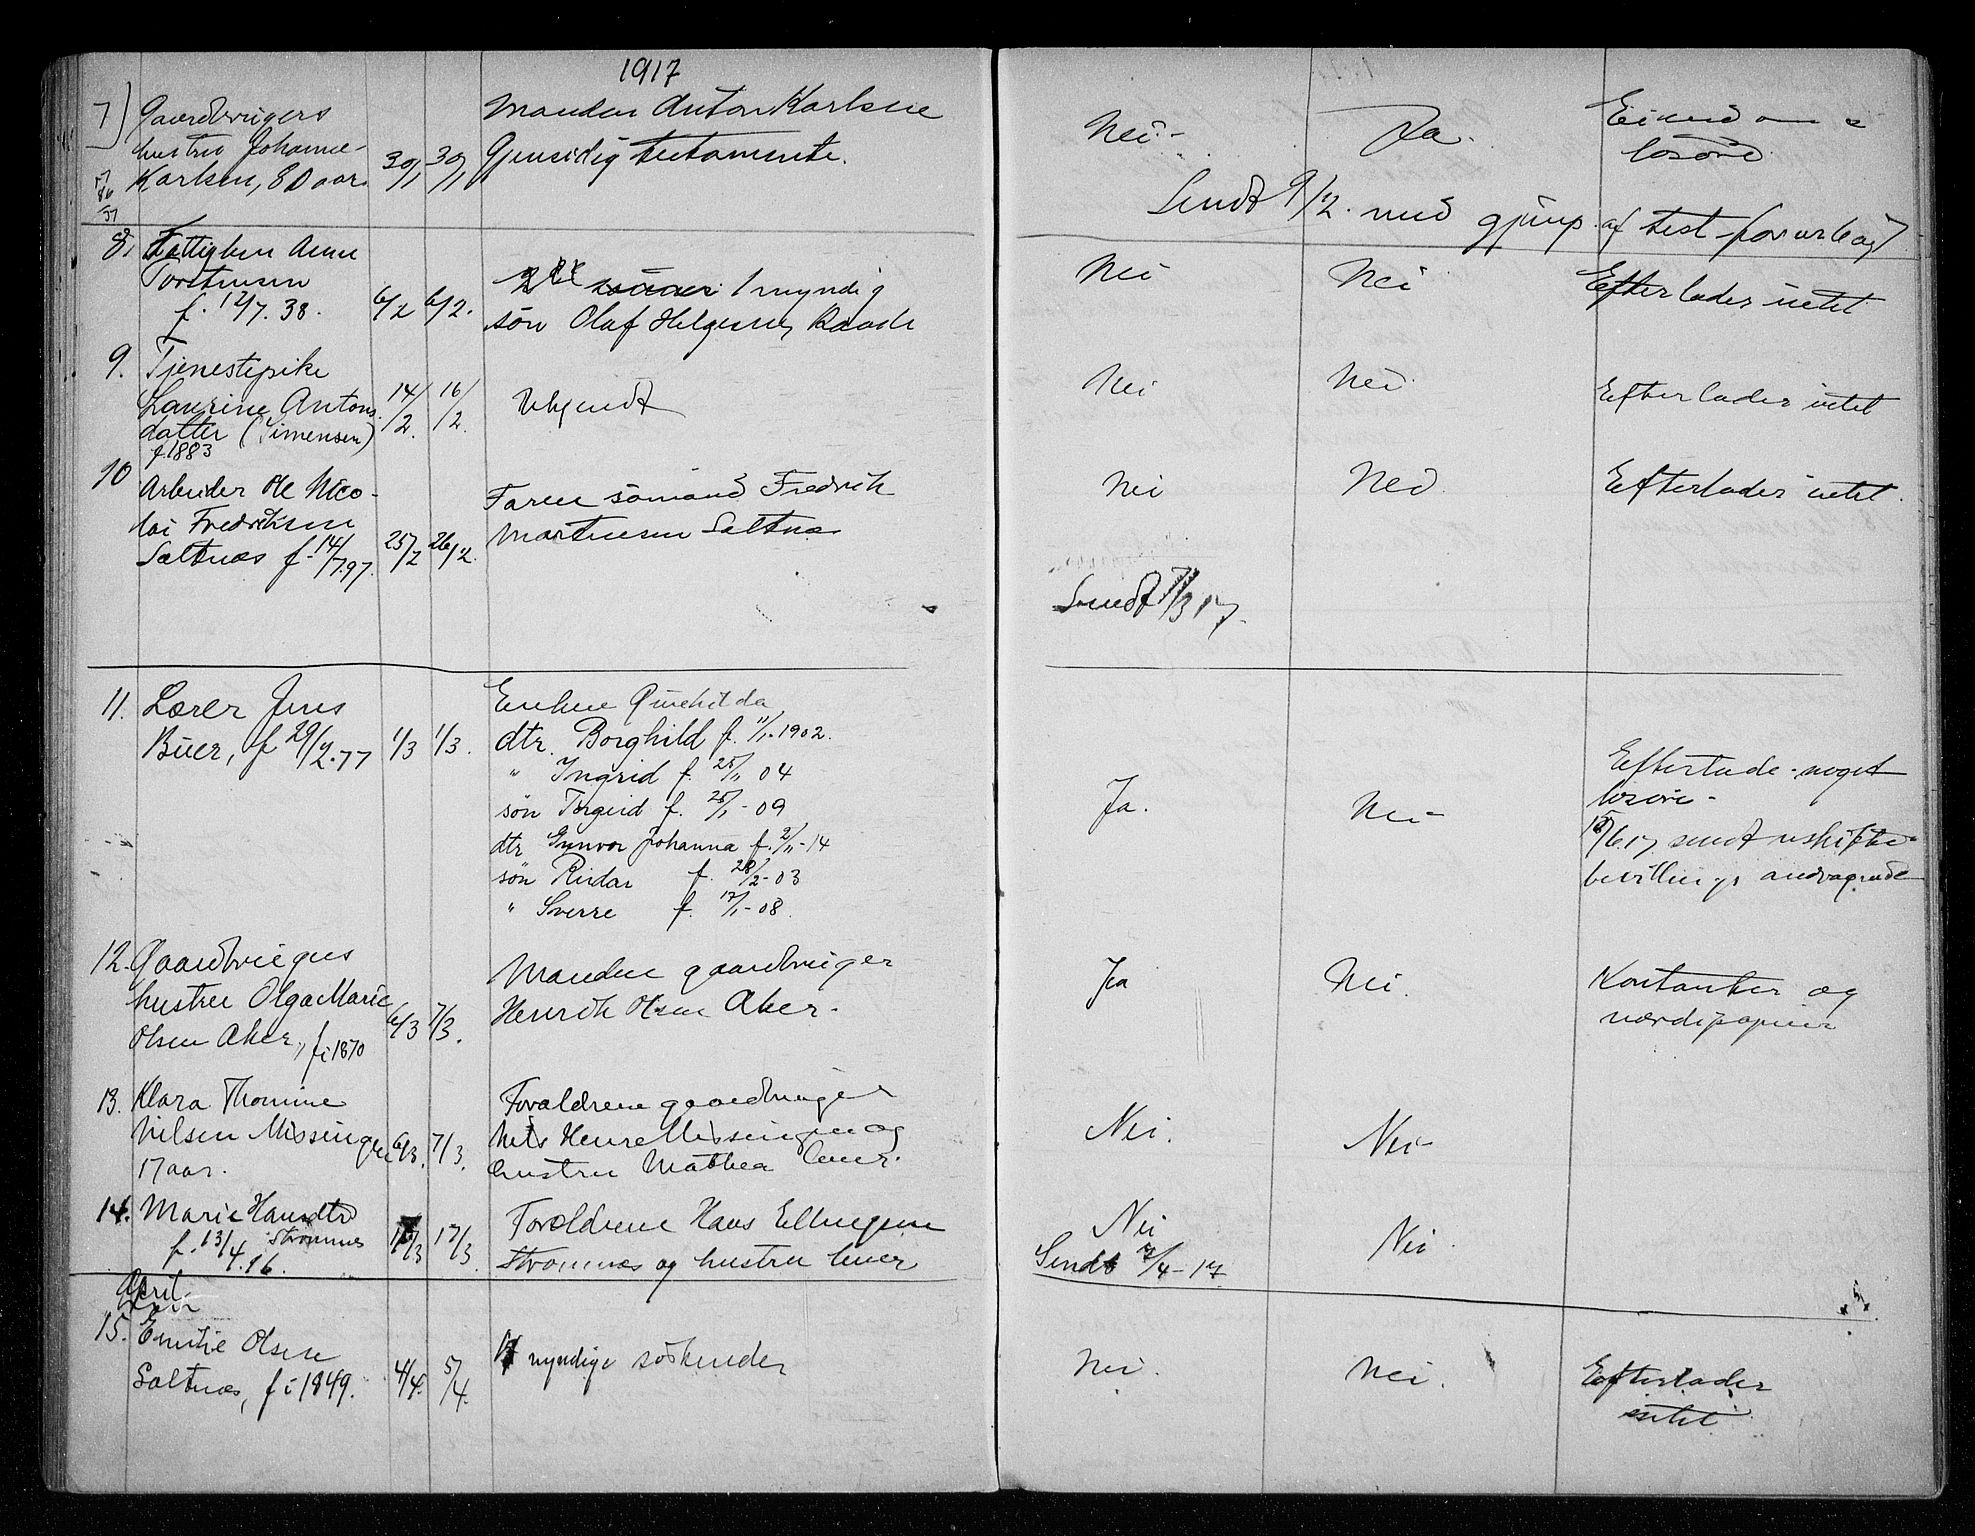 1917
7) Gaardbrugers
hustru Johanne
Karlsen, 80 aar. 30/1 30/1
Manden Anton Karlsen
Gjensidig testamente.
Nei- Ja. Eiendom
løsøre
Sendt 9/2. med gjenp. af test
8. Fattiglem Anne
Torstensen
f. 12/7. 38. 6/2 6/2.
1 myndig
søn Olaf Helgesen, Raade
Nei Nei Efterlader intet
9. Tjenestepike
Laurine Antons
datter (Simensen)
f. 1883
14/2. 16/2.
Ukjendt
Nei Nei Efterlader intet
10 Arbeider Ole Nico-
lai Fredriksen
Saltnæs f. 14/7.97. 25/2 26/2.
Faren sømand Fredrik
Martinsen Saltnæs
Nei Nei Efterlader intet.
Sendt 7/3 17.
11. Lærer Jens
Buer, f 29/2.77 1/3 1/3.
Enken Gunhilda
dtr. Borghild f. 11/1.1902.
" Ingrid f. 25/11 04
søn Torgeid f. 25/1-09
dtr Gunvor Johanna f. 2/11-14
søn Reidar f. 28/2-03
" Sverre f. 17/1-08.
Ja. Nei-
Efterlade noget
løsøre-
/6.17 sendt uskifte-
bevillings andragende
12. Gaardbrugers
hustru Olga Marie
Olsen Aker, f i 1870 6/3 7/3.
Manden gaardbruger
Henrik Olsen Aker.
Ja Nei. Kontanter og
værdipapirer
13. Klara Thomine
Nilsen Missingen 6/3. 7/3.
17 aar.
Forældrene gaardbruger
Nils Henr. Missingen og
hustru Mathea
Nei. Nei-
14. Marie Hansdtr
Strømnes
f. 13/4.16. 16/3 17/3.
Forældrene Hans Ellingsen
Strømnæs og hustru
Nei Nei
Sendt 7/4-17
April
15. Emilie Olsen
Saltnæs, f i 1849. 4/4. 5/4.
myndige søskender
Nei. Nei. Efterlader
intet